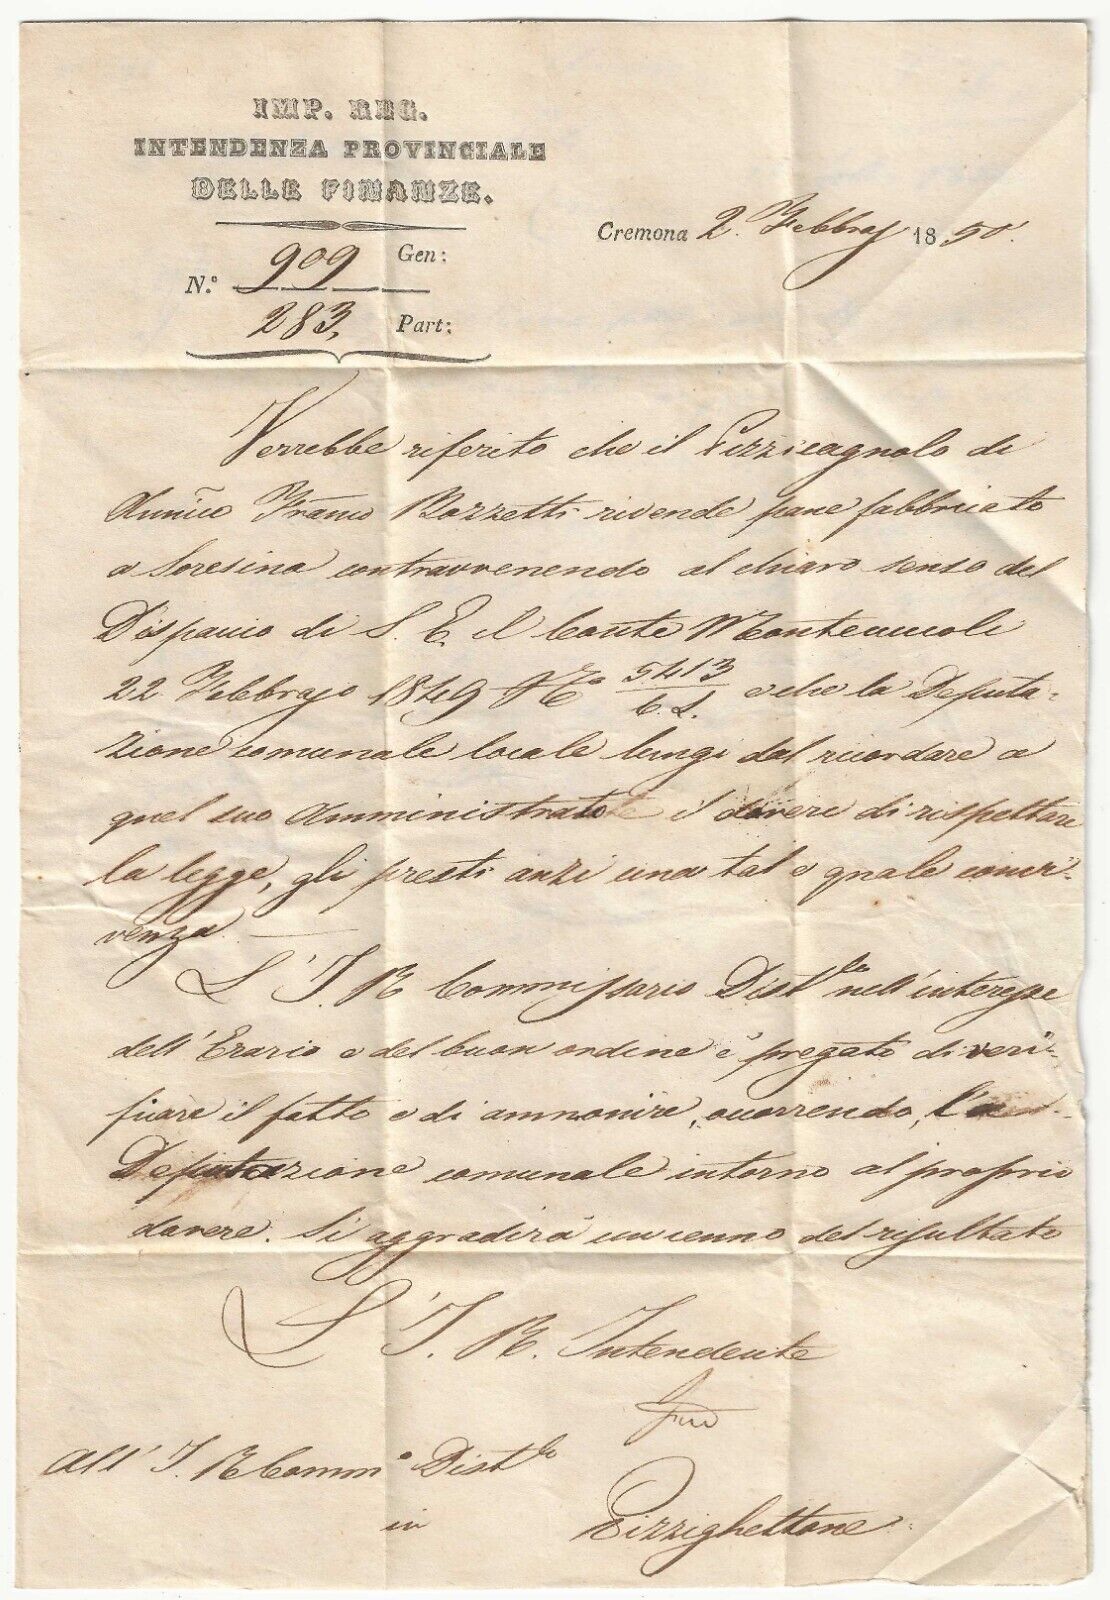 IMP. REG.
INTENDENZA PROVINCIALE
DELLE FINANZE.
Cremona 2. Febbraj 1850.
909 Gen:
N.º
283, Part:
Verrebbe riferito che il Pizzicagnolo di
Annico Franco Bozzetti rivende pane fabbricato
a Soresina contravvenendo al chiaro senso del
Dispaccio di S. E. il Conte Montecuccoli
22 Febbrajo 1849 Nº 5413/C.L. e che la Deputa-
zione comunale locale lungi dal ricordare a
quel suo Amministrato il dovere di rispettare
la legge, gli presti anzi una tal e quale conni-
venza.
L'I. R. Commissario Distle nell'interesse
dell'Erario e del buon ordine è pregato di veri-
ficare il fatto e di ammonire, occorrendo, la
Deputazione comunale intorno al proprio
dovere. Si aggradirà un cenno del risultato
L'I. R. Intendente
All'I. R. Commº Distle
in Pizzighettone